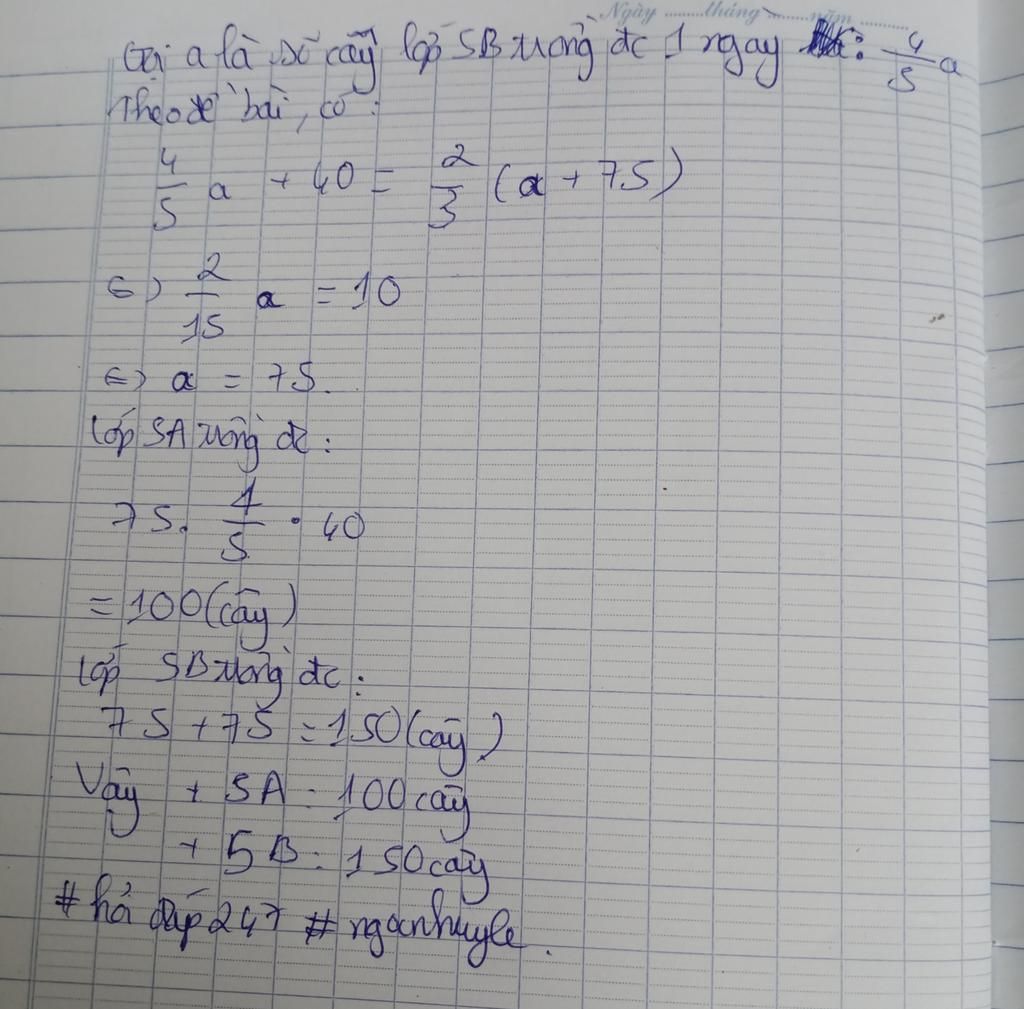 Ngày ........ tháng ........ năm ........
Gọi a là số cây lớp 5B trồng đc 1 ngay : 4/5 a
Theo đề bài, có :
4/5 a + 40 = 2/3 (a + 75)
<=> 2/15 a = 10
<=> a = 75.
Lớp 5A trồng đc :
75. 4/5 . 40
= 100 (cây)
Lớp 5B trồng đc :
75 + 75 = 150 (cây)
Vậy + 5A : 100 cây
+ 5B : 150 cây
# hỏi đáp 247 # nganhuyle .